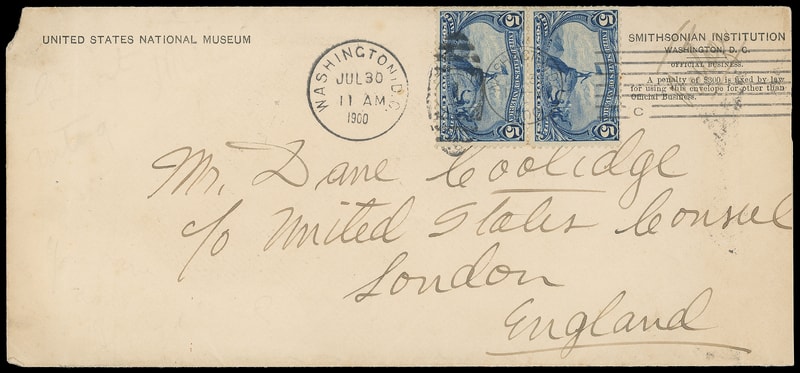 UNITED STATES NATIONAL MUSEUM
SMITHSONIAN INSTITUTION
WASHINGTON, D. C.
OFFICIAL BUSINESS.
A penalty of $300 is fixed by law
for using this envelope for other than
Official Business.
WASHINGTON, D.C.
JUL 30
11 AM
1900
5 5
5 5
C
Mr. Dane Coolidge
c/o United States Consul
London
England